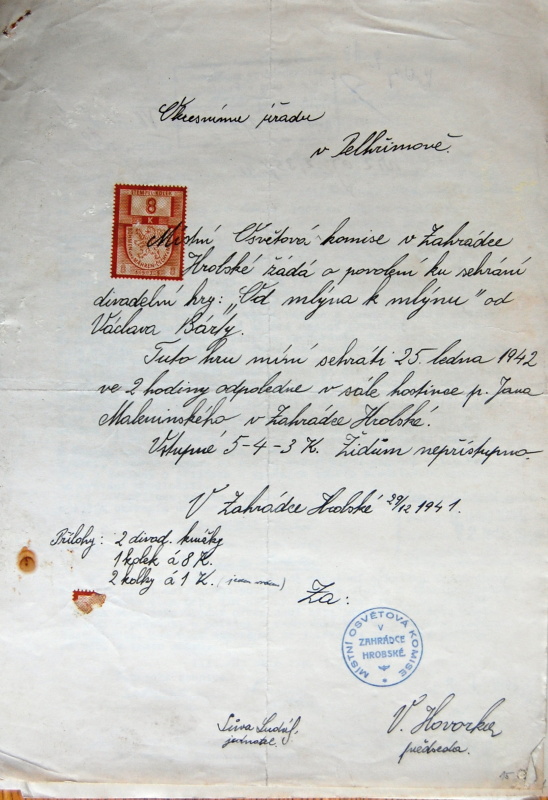 Okresnímu úřadu
v Pelhřimově.
8
K
8 8
Místní Osvětová komise v Zahrádce
Hrobské žádá o povolení ku sehrání
divadelní hry: „Od mlýna k mlýnu" od
Václava Bárty.
Tuto hru míní sehráti 25. ledna 1942
ve 2 hodiny odpoledne v sále hostince p. Jana
Maleninského v Zahrádce Hrobské.
Vstupné 5-4-3 K. Židům nepřístupno.
V Zahrádce Hrobské 29/12 1941.
Přílohy: 2 divad. knížky
1 kolek á 8 K.
2 kolky á 1 K.
Za:
MÍSTNÍ OSVĚTOVÁ KOMISE
V
ZAHRÁDCE
HROBSKÉ
jednatel.
V. Hovorka
předseda.